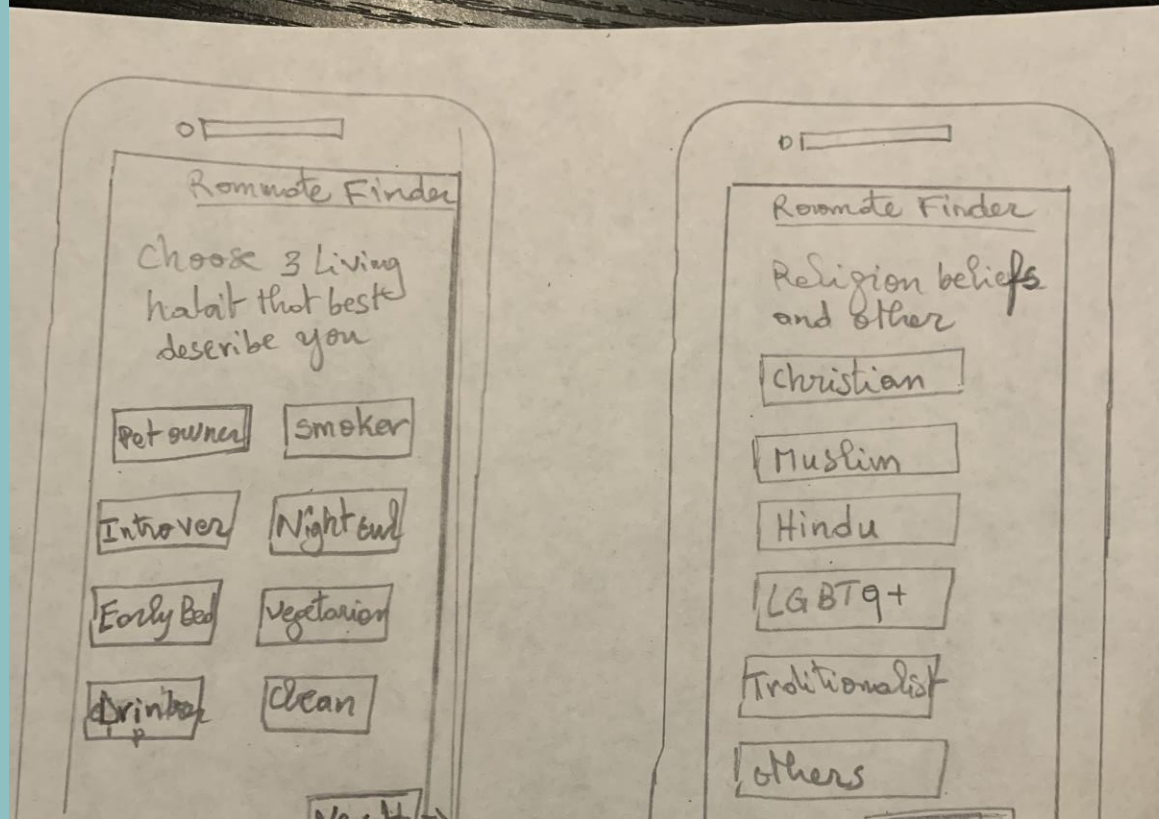 Rommate Finder
Choose 3 Living
habit that best
describe you
Pet owner
Smoker
Introver
Night owl
Early Bed
vegetarian
Clean
Next
Roomate Finder
Religion beliefs
and other
Christian
Muslim
Hindu
LGBTq+
Traditionalist
others